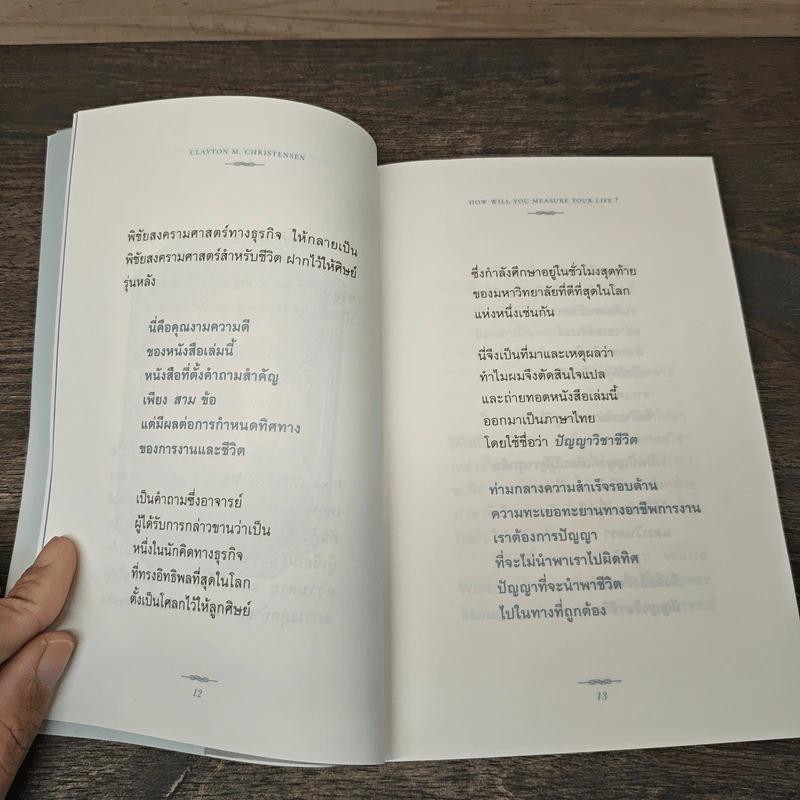 CLAYTON M. CHRISTENSEN
พิชัยสงครามศาสตร์ทางธุรกิจ ให้กลายเป็น
พิชัยสงครามศาสตร์สำหรับชีวิต ฝากไว้ให้ศิษย์
รุ่นหลัง
นี่คือคุณงามความดี
ของหนังสือเล่มนี้
หนังสือที่ตั้งคำถามสำคัญ
เพียง สาม ข้อ
แต่มีผลต่อการกำหนดทิศทาง
ของการงานและชีวิต
เป็นคำถามซึ่งอาจารย์
ผู้ได้รับการกล่าวขานว่าเป็น
หนึ่งในนักคิดทางธุรกิจ
ที่ทรงอิทธิพลที่สุดในโลก
ตั้งเป็นโศลกไว้ให้ลูกศิษย์
12
HOW WILL YOU MEASURE YOUR LIFE ?
ซึ่งกำลังศึกษาอยู่ในชั่วโมงสุดท้าย
ของมหาวิทยาลัยที่ดีที่สุดในโลก
แห่งหนึ่งเช่นกัน
นี่จึงเป็นที่มาและเหตุผลว่า
ทำไมผมจึงตัดสินใจแปล
และถ่ายทอดหนังสือเล่มนี้
ออกมาเป็นภาษาไทย
โดยใช้ชื่อว่า ปัญญาวิชาชีวิต
ท่ามกลางความสำเร็จรอบด้าน
ความทะเยอทะยานทางอาชีพการงาน
เราต้องการปัญญา
ที่จะไม่นำพาเราไปผิดทิศ
ปัญญาที่จะนำพาชีวิต
ไปในทางที่ถูกต้อง
13